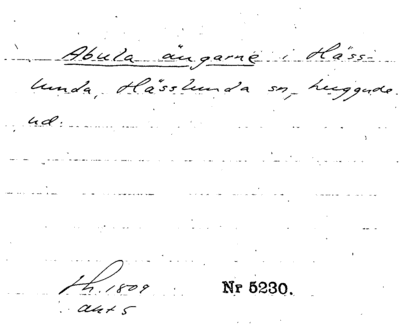 Abula ängarne i Häss-
lunda, Hässlunda sn, Luggude
hd.
1809
akt 5
Nr 5230.